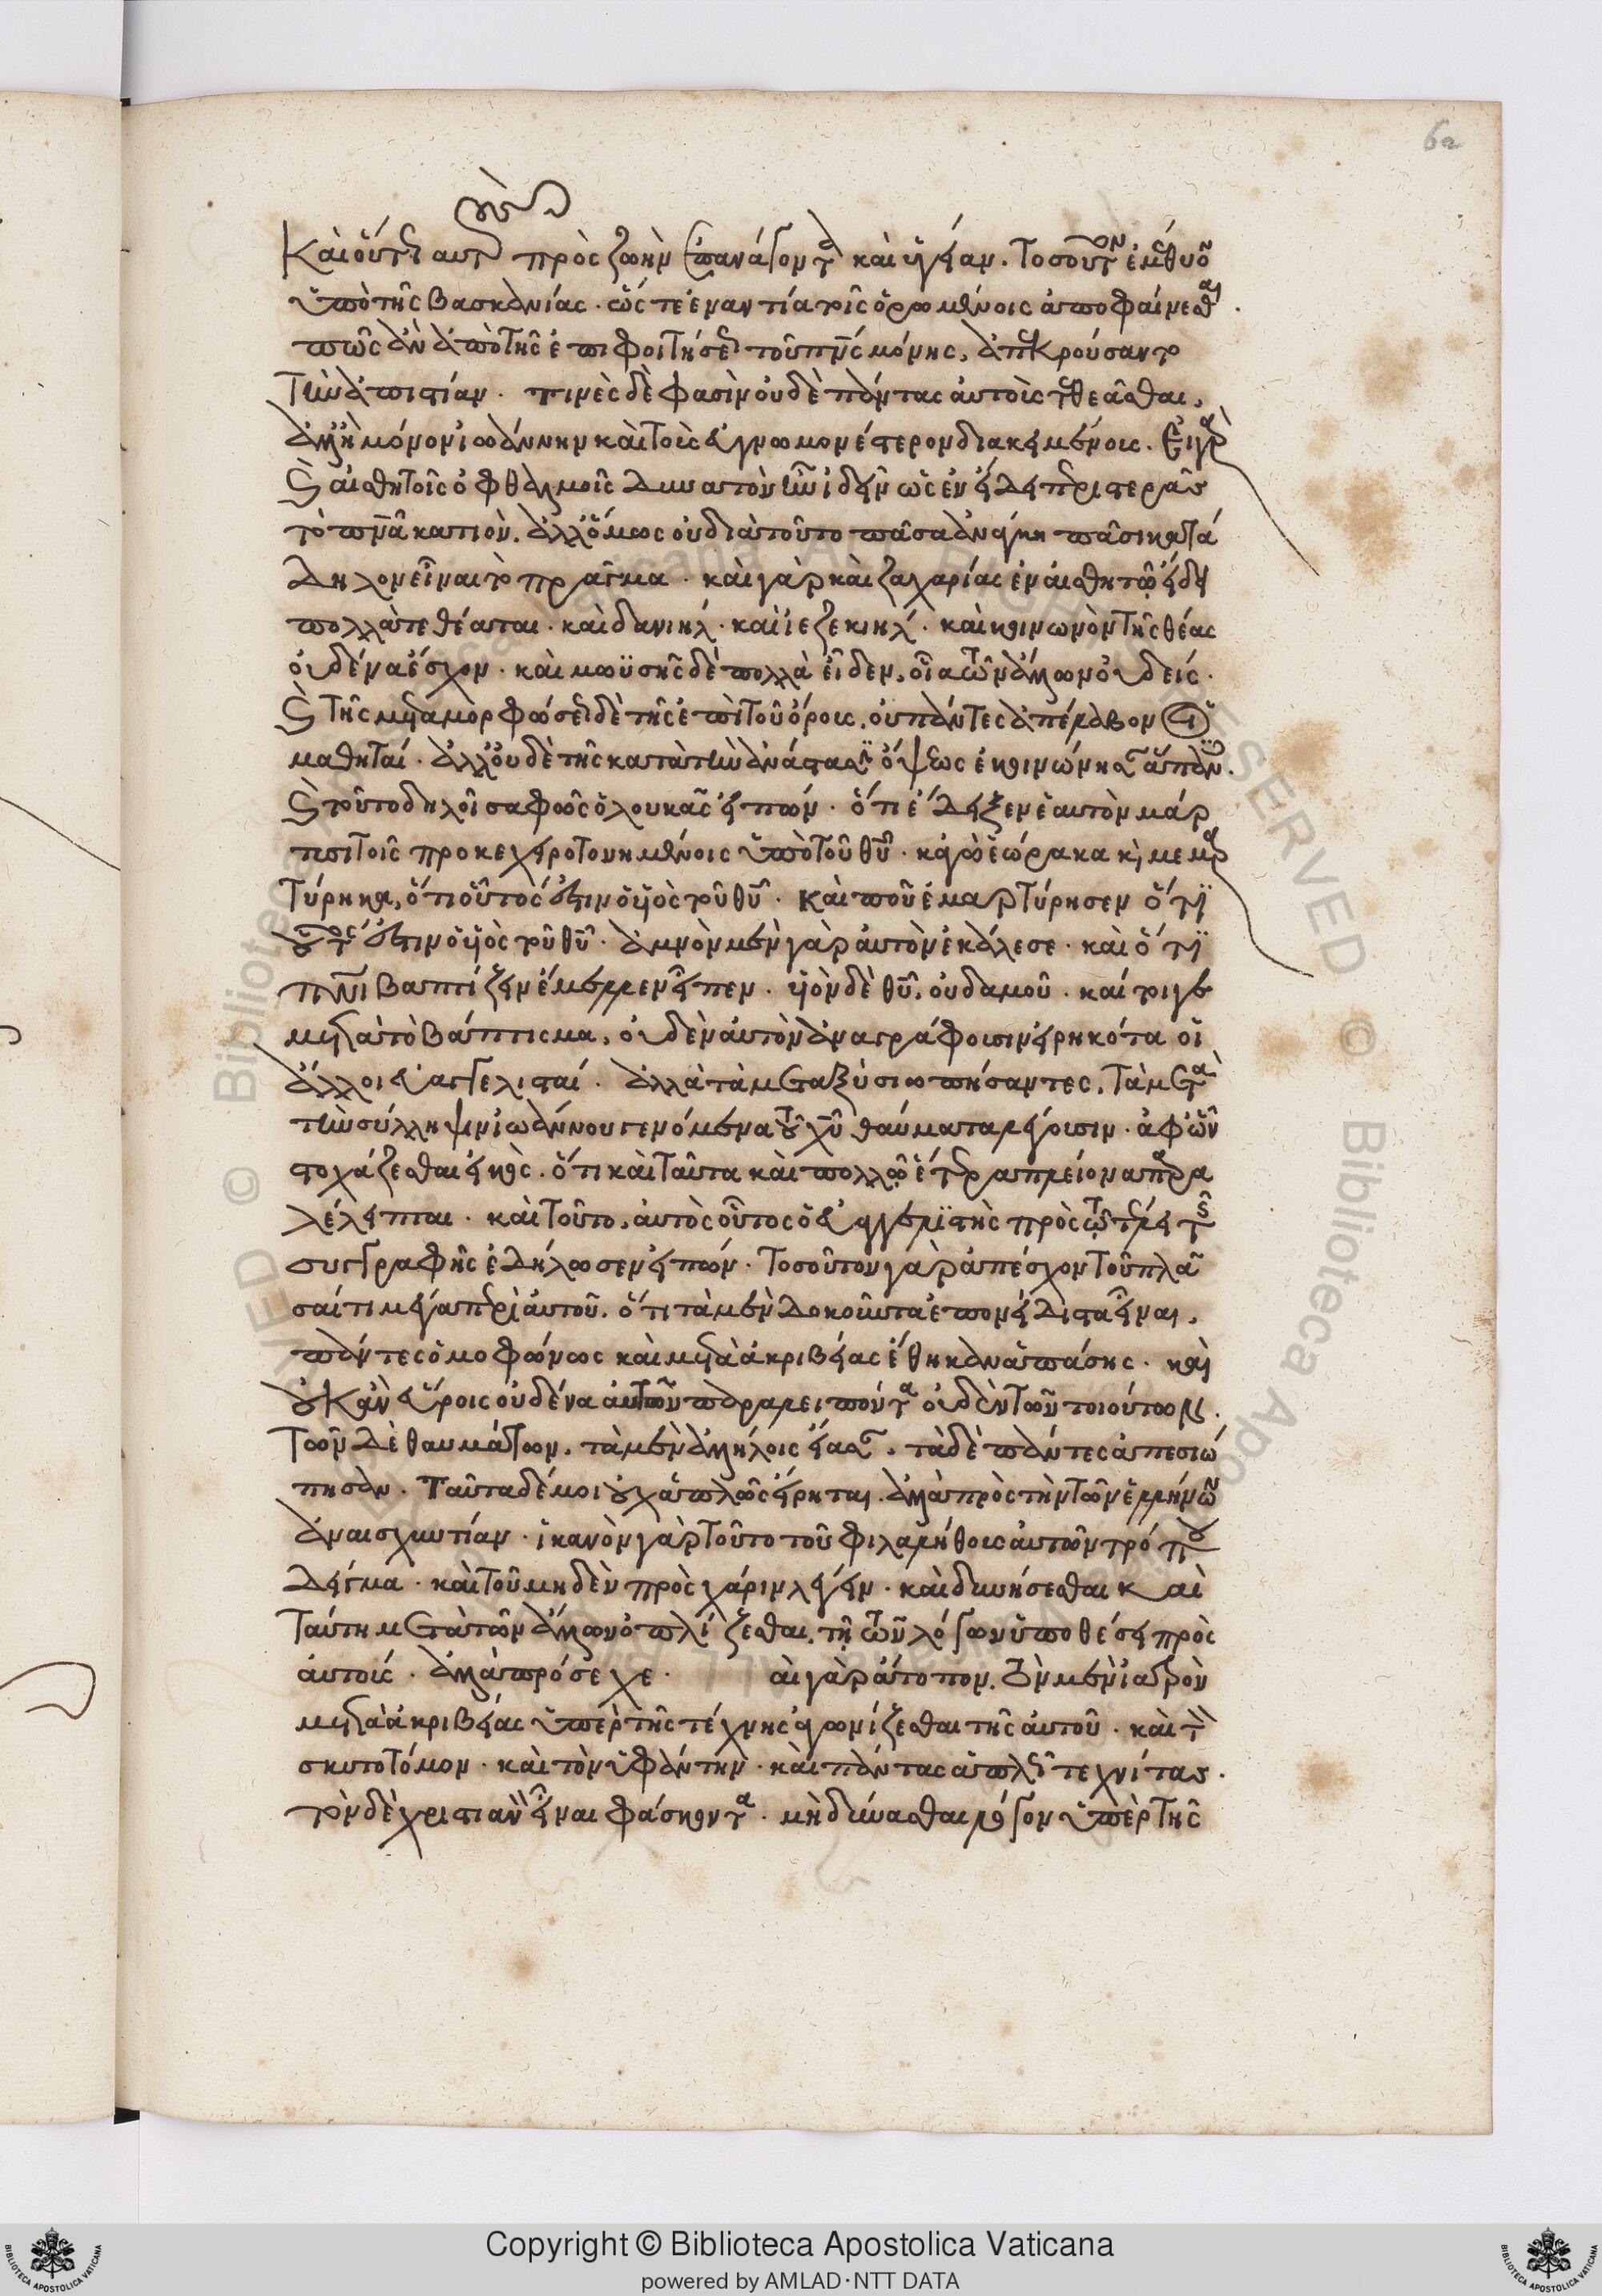 62
Καὶ οὕτως αὐτοὺς πρὸς ζωὴν ἐπανάγοντα καὶ ὑγείαν. Τοσοῦτον ἐμέθυον
ὑπὸ τῆς βασκανίας. ὥς τε ἐναντία τοῖς ὁρωμένοις ἀποφαίνεσθαι.
πῶς ἂν ἀπὸ τῆς ἐπιφοιτήσεως τοῦ πνς μόνης, ἀπεκρούσαντο
τὴν ἀπιστίαν. τινὲς δέ φασιν οὐδὲ πάντας αὐτοὺς τεθεᾶσθαι,
ἀλλὴ μόνον ἰωάννην καὶ τοὺς εὐγνωμονέστερον διακειμένους. Εἰ γὰρ
καὶ αἰσθητοῖς ὀφθαλμοῖς δυνατὸν ἦν ἰδεῖν ὡς ἐν εἴδει περιστερᾶς
τὸ πνα κατιὸν. ἀλλ ὅμως οὐ διὰ τοῦτο πᾶσα ἀνάγκη πᾶσι κατά
δηλον εἶναι τὸ πρᾶγμα. καὶ γὰρ καὶ ζαχαρίας ἐν αἰσθητῷ εἴδει
πολλὰ τεθέαται. καὶ δανιηλ. καὶ ἰεζεκιηλ. καὶ κοινωνὸν τῆς θέας
οὐδένα ἔσχον. καὶ μωϋσῆς δὲ πολλὰ εἶδεν, οἷα τῶν ἄλλων οὐδείς.
καὶ τῆς μεταμορφώσεως δὲ τῆς ἐπὶ τοῦ ὄρους, οὐ πάντες ἀπέλαβον οἱ
μαθηταί. ἀλλ οὐδὲ τῆς κατὰ τὴν ἀνάστασιν ὄψεως ἐκοινώνησαν ἅπαντες.
καὶ τοῦτο δηλοῖ σαφῶς ὁ λουκᾶς εἰπών. ὅτι ἔδειξεν ἑαυτὸν μάρ
τυσι τοῖς προκεχειροτονημένοις ὑπὸ τοῦ θυ. κἀγὼ ἑώρακα καὶ μεμαρ
τύρηκα, ὅτι οὗτός ἐστιν ὁ υἱὸς τοῦ θυ. Καὶ ποῦ ἐμαρτύρησεν ὅτι
οὗτος ἐστιν ὁ υἱὸς τοῦ θυ. ἀμνὸν μὲν γὰρ αὐτὸν ἐκάλεσε. καὶ ὅτι
πνι βαπτίζειν ἔμελλεν εἶπεν. υἱὸν δὲ θυ, οὐδαμοῦ. καί τοιγε
μετὰ τὸ βάπτισμα, οὐδὲν αὐτὸν ἀναγράφουσιν εἰρηκότα οἱ
ἄλλοι εὐαγγελισταί. ἀλλὰ τὰ μεταξὺ σιωπήσαντες, τὰ μετὰ
τὴν σύλληψιν ἰωάννου γενόμενα τοῦ χυ θαύματα λέγουσιν. ἀφ ὧν
στοχάζεσθαι εἰκὸς. ὅτι καὶ ταῦτα καὶ πολλῷ ἕτερα πλείονα παρα
λέλειπται. καὶ τοῦτο, αὐτὸς οὗτος ὁ εὐαγγελιστὴς πρὸς τῷ τέλει τῆς
συγγραφῆς ἐδήλωσεν εἰπών. Τοσοῦτον γὰρ ἀπέσχον τοῦ πλά
σαί τι μέγα περὶ αὐτοῦ. ὅτι τὰ μὲν δοκοῦντα ἐπονείδιστα εἶναι,
πάντες ὁμοφώνως καὶ μετὰ ἀκριβείας ἔθηκαν ἁπάσης. καὶ
οὐκ ἂν εὕροις οὐδένα αὐτῶν παραλειπόντα οὐδὲν τῶν τοιούτων.
Τῶν δὲ θαυμάτων, τὰ μὲν ἀλλήλοις εἴασαν, τὰ δὲ πάντες ἀπεσιώ
πησαν. Ταῦτα δέ μοι οὐχ ἁπλῶς εἴρηται. ἀλλὰ πρὸς τὴν τῶν ἑλλήνων
ἀναισχυντίαν. ἱκανὸν γὰρ τοῦτο τοῦ φιλαλήθους αὐτῶν τρόπου
δεῖγμα. καὶ τοῦ μηδὲν πρὸς χάριν λέγειν. καὶ δυνήσεσθαι καὶ
ταύτη μετὰ τῶν ἄλλων ὁπλίζεσθαι τῇ τῶν λόγων ὑποθέσει πρὸς
αὐτούς. ἀλλὰ πρόσεχε. αι γὰρ ἄτοπον, τὸν μὲν ἰατρὸν
μετὰ ἀκριβείας ὑπὲρ τῆς τέχνης ἀγωνίζεσθαι τῆς αὐτοῦ. καὶ τὸν
σκυτοτόμον. καὶ τὸν ὑφάντην. καὶ πάντας ἁπλῶς τεχνίτας.
τὸν δὲ χριστιανὸν εἶναι φάσκοντα. μὴ δύνασθαι λόγον ὑπὲρ τῆς
Copyright © Biblioteca Apostolica Vaticana
powered by AMLAD·NTT DATA